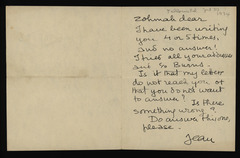 Zohmah dear
I have been writing
you 4 or 5 times,
and no answer!
I tried all your addresses
and Burns.
Is it that my letters
do not reach you or
that you do not want
to answer? Is there
something wrong?
Do answer this one,
please.
Jean